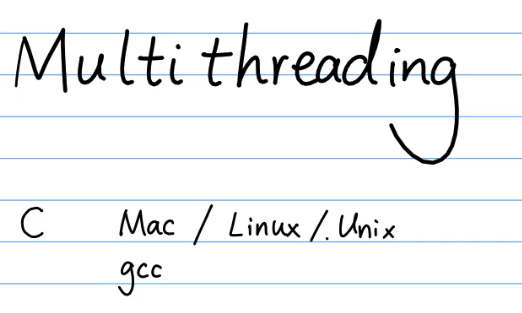 Multithreading
C Mac / Linux /. Unix
gcc